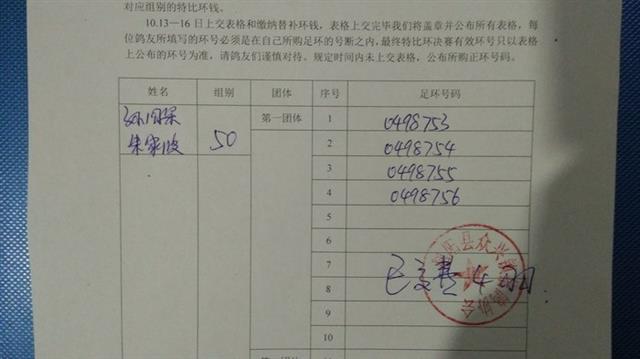 对应组别的特比环钱。
10.13—16 日上交表格和缴纳替补环钱，表格上交完毕我们将盖章并公布所有表格，每
位鸽友所填写的环号必须是在自己所购足环的号断之内，最终特比环决赛有效环号只以表格
上公布的环号为准，请鸽友们谨慎对待。规定时间内未上交表格，公布所购正环号码。
姓名 组别 团体 序号 足环号码
第一团体 1 0498753
朱家波 50 2 0498754
3 0498755
4 0498756
5
6
7
已交费 4
8
9
10
县众兴